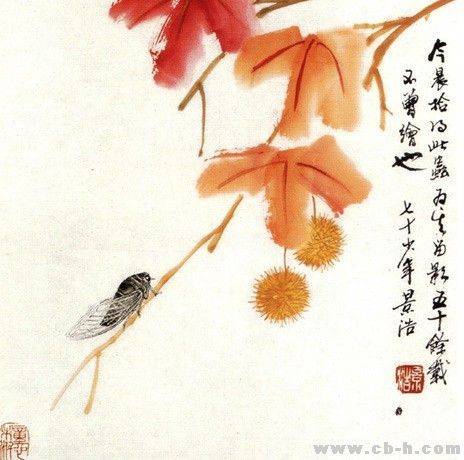 今晨拾得此蟲為其留影五十餘載
不曾繪也 七十少年景浩
www.cb-h.com